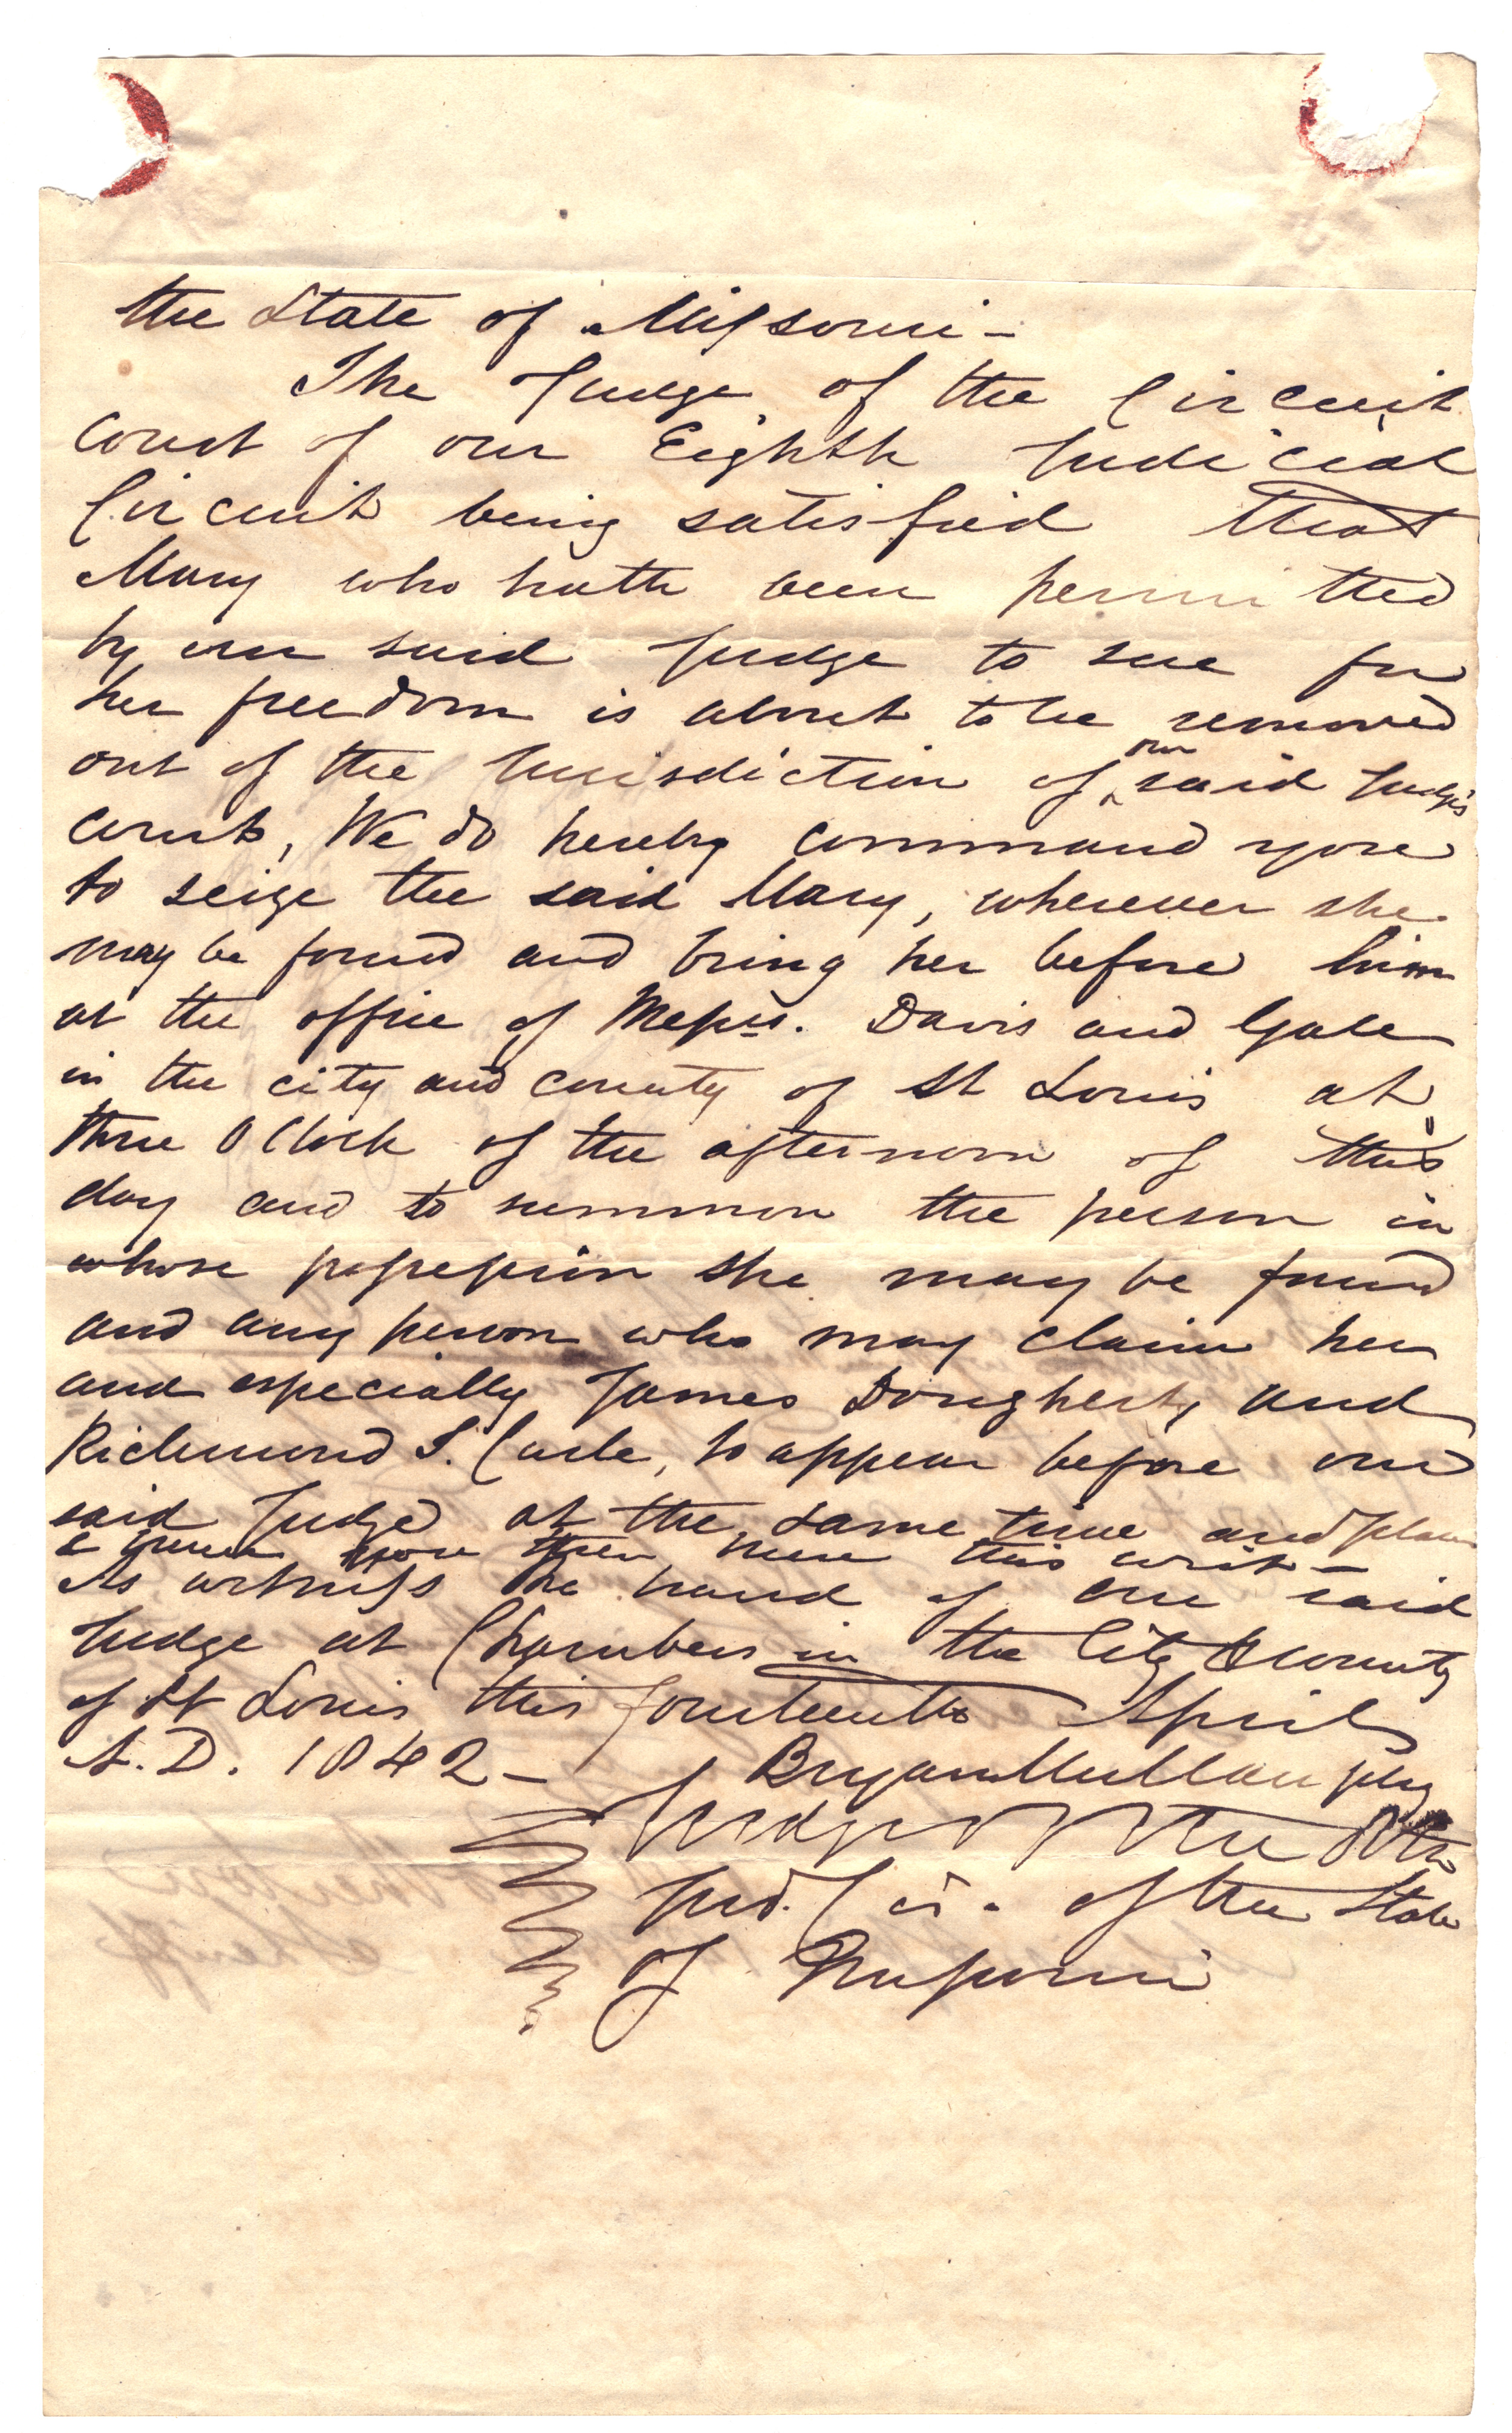 the State of Missouri –
The Judge of the Circuit
Court of our Eighth Judicial
Circuit being satisfied that
Mary who hath been permitted
by our said Judge to sue for
her freedom is about to be removed
out of the Jurisdiction of our said Judge's
court, We do hereby command you
to seize the said Mary, wherever she
may be found and bring her before him
at the office of Messrs. Davis and Gale
in the city and county of St Louis at
three O Clock of the afternoon of this
day and to summon the person in
whose possession she may be found
and any person who may claim her
and especially James Dougherty and
Richmond S. Curle, to appear before our
said Judge at the same time and place
& have you then here this writ –
As witness the hand of our said
Judge at Chambers in the City & County
of St Louis this fourteenth April
A.D. 1842 – Bryan Mullanphy
Judge of the 8th
Jud. Cir. of the State
of Missouri